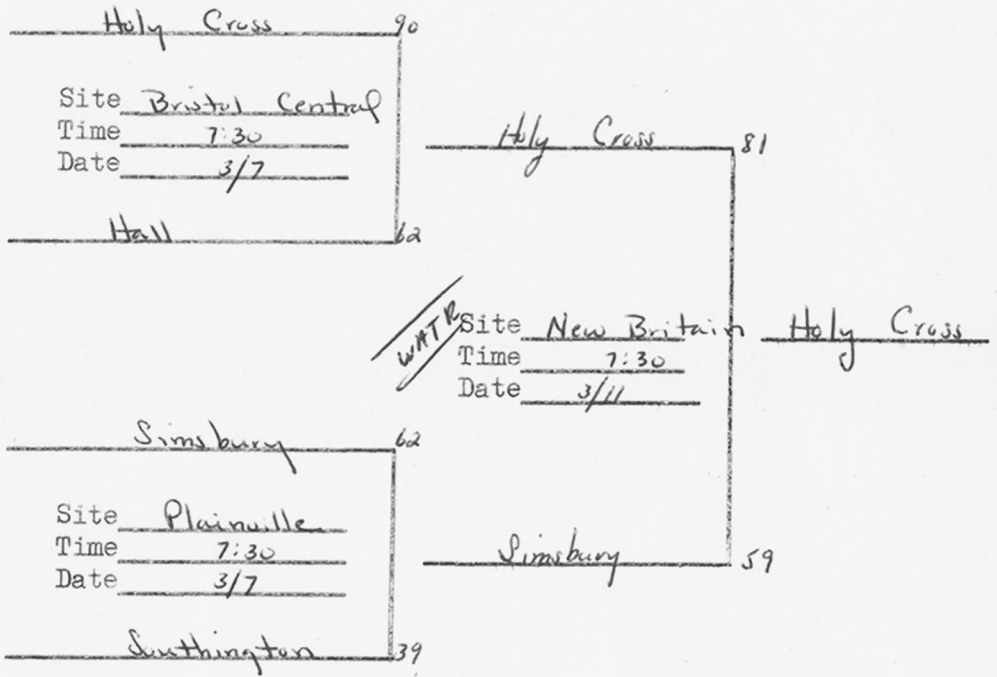 Holy Cross 90
Site Bristol Central
Time 7:30
Date 3/7
Hall 62
Holy Cross 81
WATR
Site New Britain
Time 7:30
Date 3/11
Holy Cross
Simsbury 62
Site Plainville
Time 7:30
Date 3/7
Southington 39
Simsbury 59